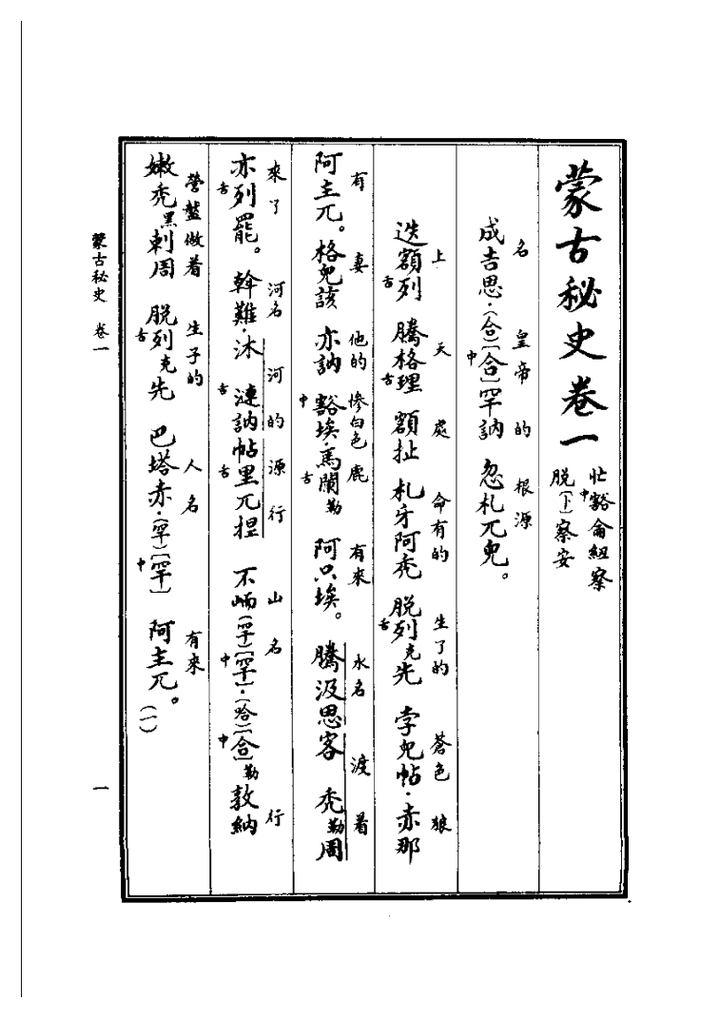 蒙古秘史卷一
忙中豁侖紐察
脫〔卜〕察安
名 皇帝的 根源
成吉思·(合)〔中合〕罕訥 忽札兀兒。
上 天 處 命有的 生了的 蒼色 狼
迭額舌列 騰格舌理 額扯 札牙阿禿 脫舌列克先 孛兒帖·赤那
有 妻 他的 慘白色 鹿 有來 水名 渡着
阿主兀。格兒該 亦訥 中豁埃·馬舌闌勒 阿只埃。騰汲思客 禿勒周
來了 河名 河的 源行 山名 行
亦舌列罷。斡難·沐舌漣訥 帖舌里兀捏 不峏(罕)〔中罕〕·(哈)〔中合〕勒敦納
營盤做着 生子的 人名 有來
嫩禿黑剌周 脫舌列克先 巴塔赤·(罕)〔中罕〕 阿主兀。(一)
蒙古秘史 卷一
一